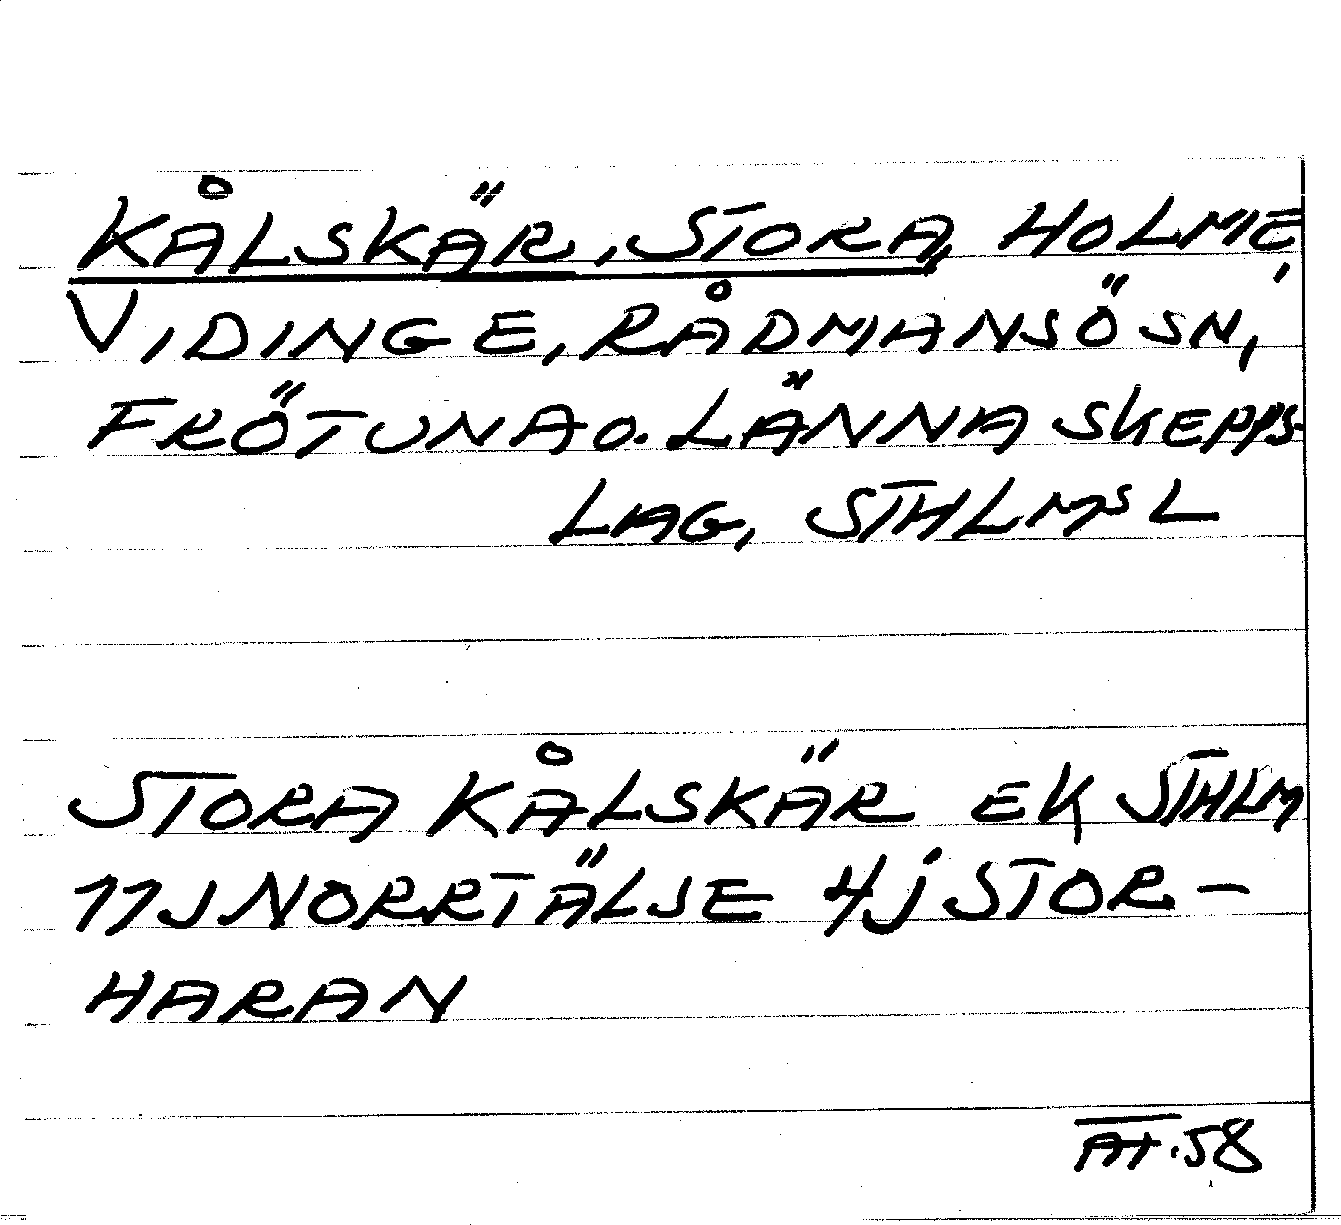 KÅLSKÄR, STORA, HOLME,
VIDINGE, RÅDMANSÖ SN,
FRÖTUNA O. LÄNNA SKEPPS-
LAG, STHLMS L
STORA KÅLSKÄR EK STHLM
11J NORRTÄLJE 4j STOR-
HARAN
58